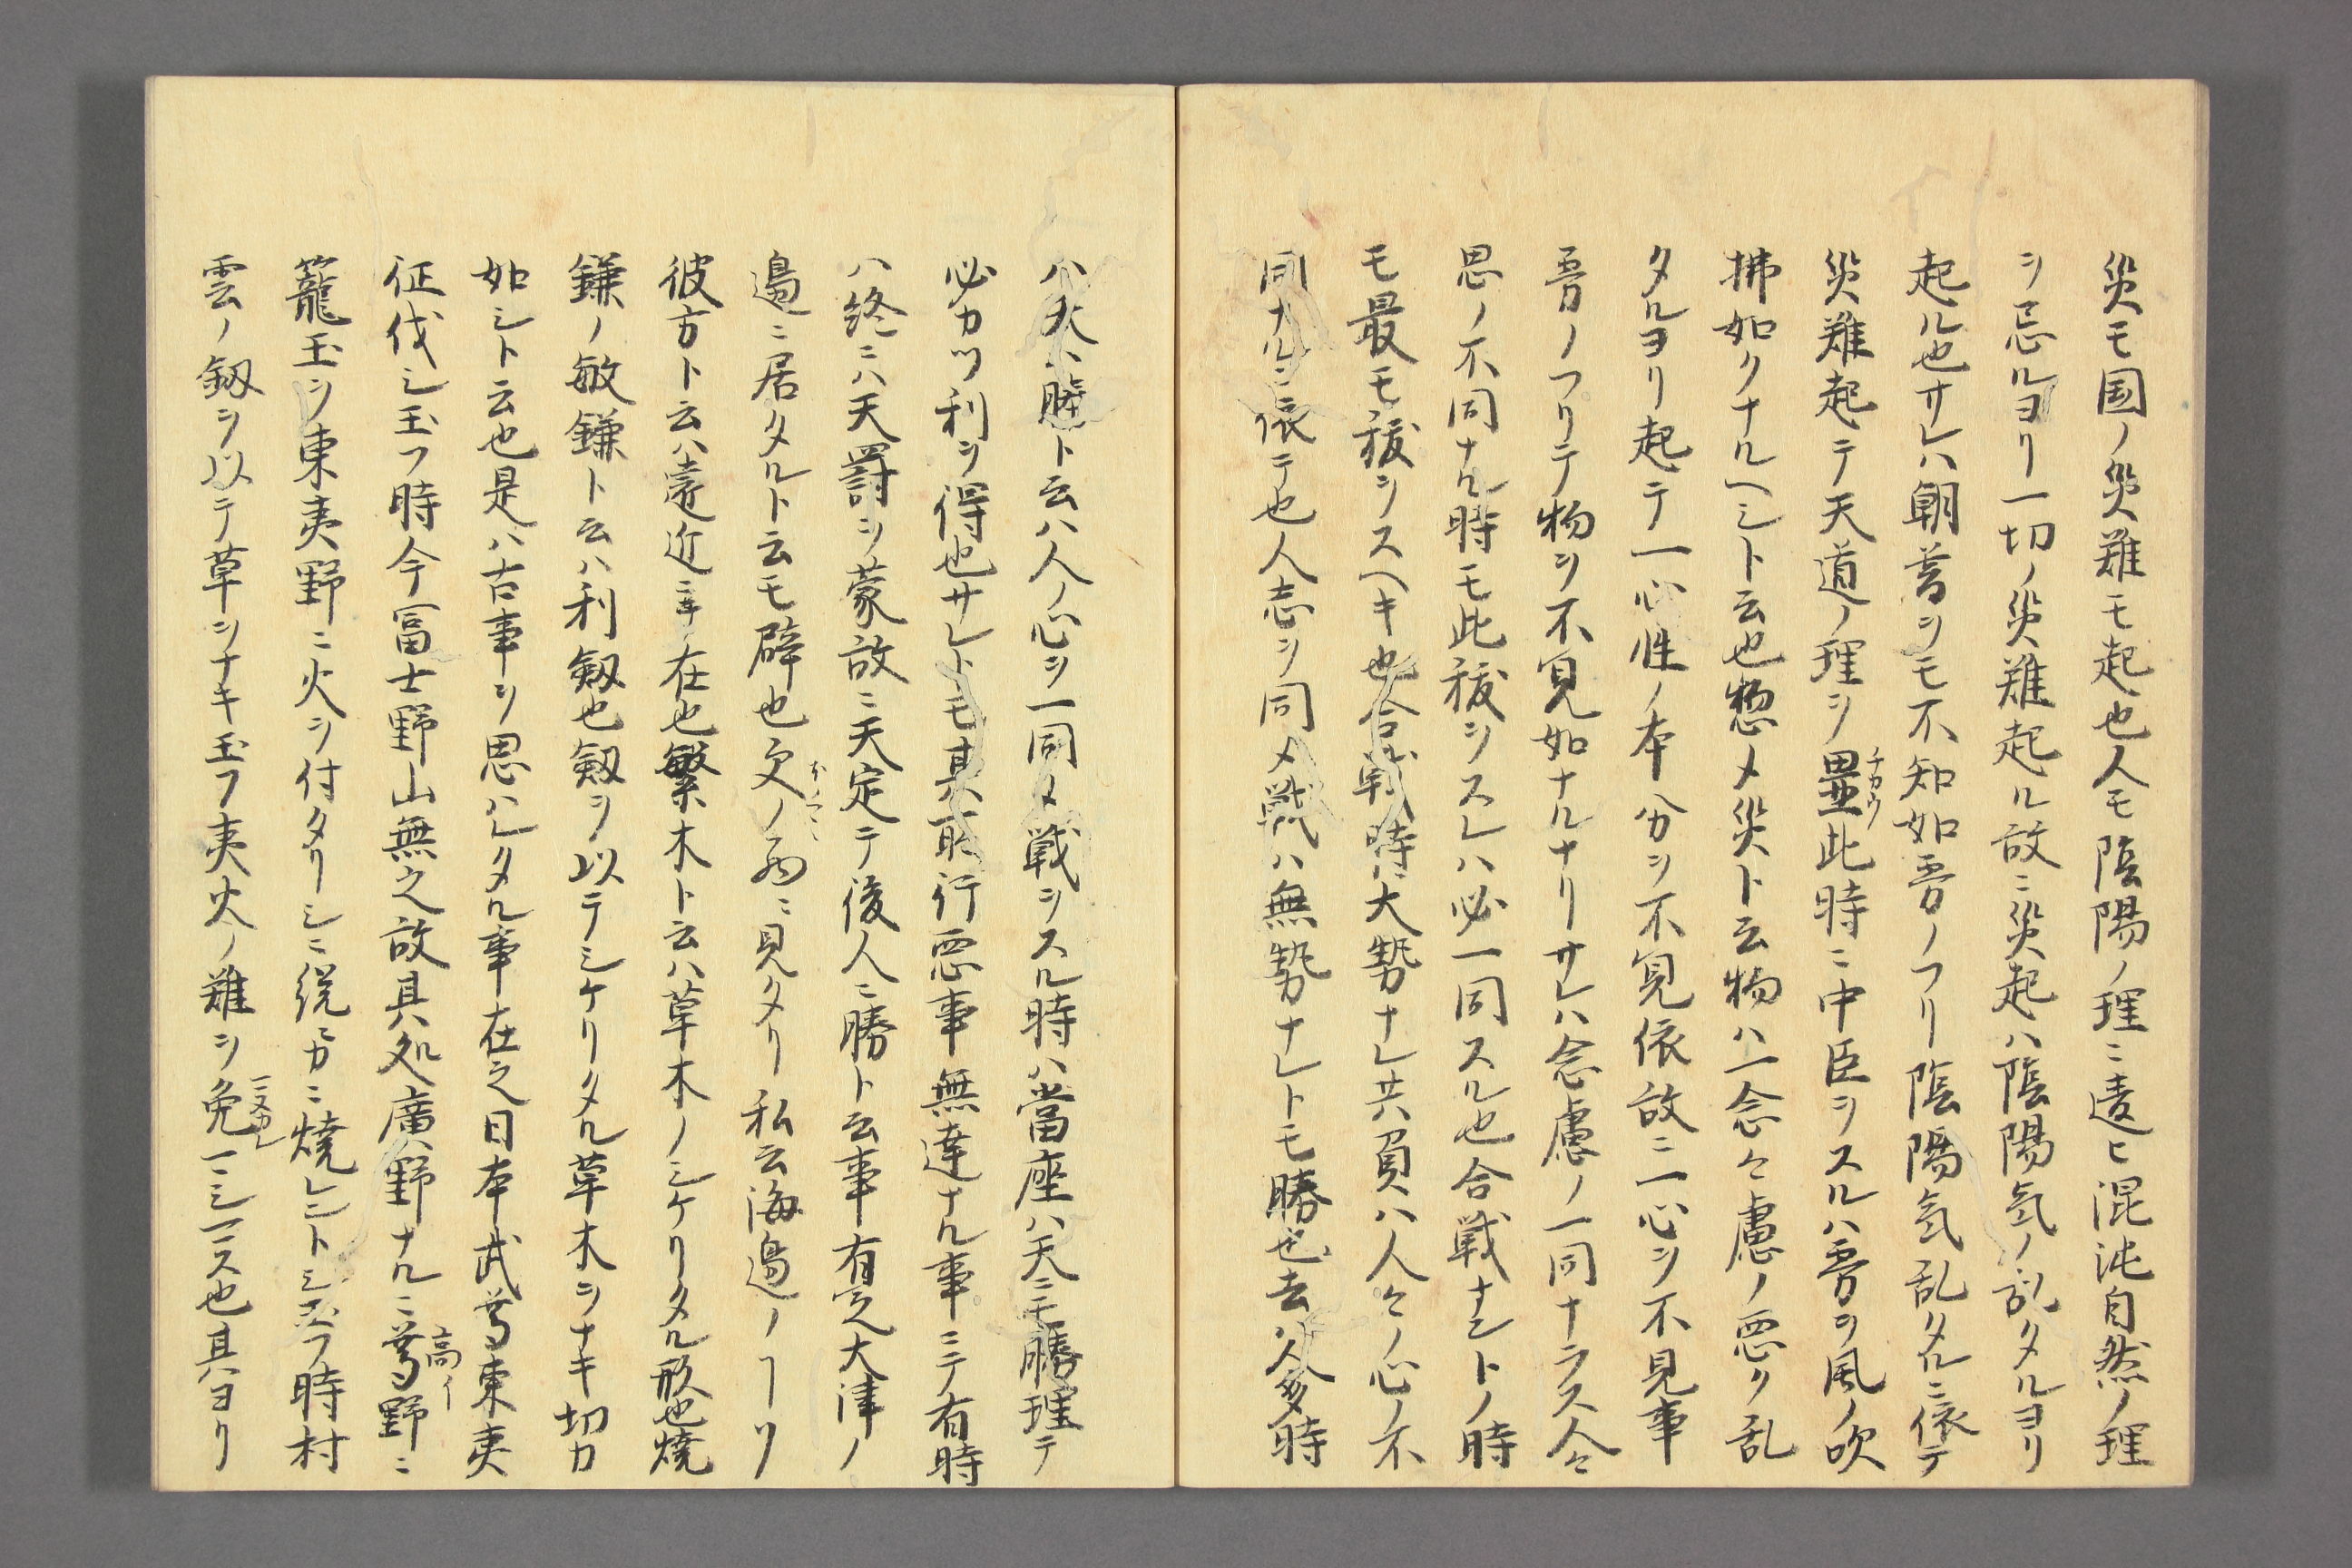 災モ国ノ災難モ起也人モ陰陽ノ理ニ違ヒ混沌自然ノ理
ヲ忌ルヨリ一切ノ災難起ル故ニ災起ハ陰陽気ノ乱タルヨリ
起ル也サレハ朝暮ヲモ不知如雲ノフリ陰陽気乱タルニ依テ
災難起テ天道ノ理ヲ此時ニ中臣ヲスルハ雲ヲ風ノ吹
チカウ
拂如クナルヘシト云也惣メ災ト云物ハ一念々慮ノ悪ク乱
タルヨリ起テ一心性ノ本分ヲ不見依故ニ一心ヲ不見事
雲ノフリテ物ヲ不見如ナルナリサレハ念慮ノ一同ナラス人々
思ノ不同ナル時モ此祓ヲスレハ必一同スル也合戦ナントノ時
モ最モ祓ヲスヘキ也合戦時ハ大勢ナレ共負ハ人々ノ心ノ不
同ナルニ依テ也人志ヲ同メ戦ハ無勢ナレトモ勝也去ハ人多時
ハ天ニ勝ト云ハ人ノ心ヲ一同メ戦ヲスル時ハ當座ハ天ニモ勝理テ
必カツ利ヲ得也サレトモ其所行悪事無達ナル事ニテ有時
ハ終ニハ天罸ヲ蒙故ニ天定テ後人ニ勝ト云事有之大津ノ
邉ニ居タルト云モ辟也文ノ面ニ見タリ私云海邉ノ
彼方ト云ハ遠近ニ在也繁木ト云ハ草木ノシケリタル形也焼
鎌ノ敏鎌ト云ハ利釼也釼ヲ以テシケリタル草木ヲナキ切カ
如シト云也是ハ古事ヲ思ハレタル事在之日本武尊東夷
征伐シ玉フ時今冨士野山無之故具処廣野ナルニ尊野ニ
高イ
籠玉ヲ東夷野ニ火ヲ付タリシニ焼ントシ玉フ時村
雲ノ釼ヲ以テ草ヲナキ玉フ夷火ノ難ヲ免也其ヨリ